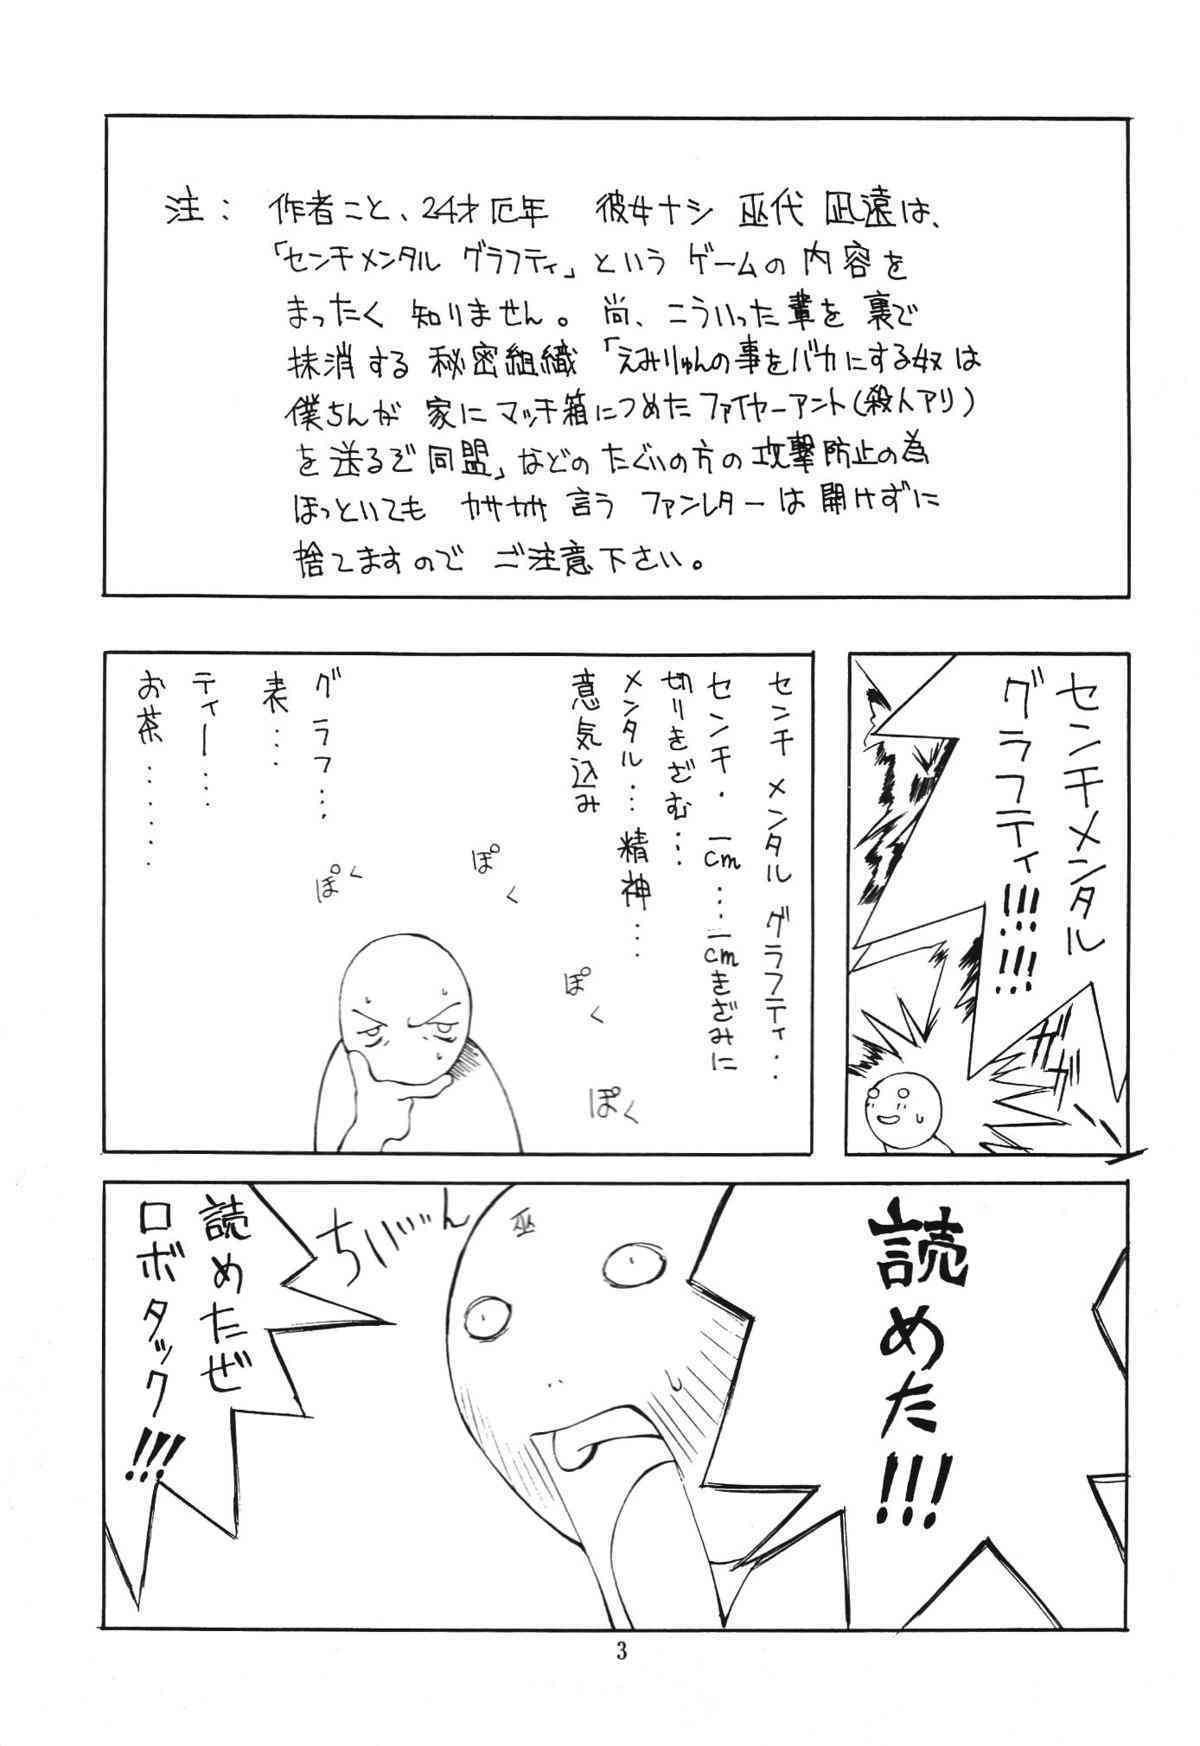 注： 作者こと、24才厄年 彼女ナシ 巫代 凪遠は、
「センチメンタル グラフティ」という ゲームの 内容を
まったく 知りません。尚、こういった輩を 裏で
抹消する 秘密組織「えみりゅんの事をバカにする奴は
僕ちんが 家に マッチ箱につめた ファイヤーアント(殺人アリ)
を 送るぞ 同盟」などの たぐいの方の 攻撃防止の為
ほっといても ガサガサ 言う ファンレターは 開けずに
捨てますので ご注意下さい。
センチメンタル
グラフティ!!!!
ガガーン
センチメンタルグラフティ‥
センチ・一cm…一cmきざみに
切りきざむ…
メンタル…精神…
意気込み
グラフ…
表…
ティー…
お茶……
ぽく
ぽく
ぽく
ぽく
読めた!!!
巫
ちぃーん
読めたぜ
ロボタック!!!
3